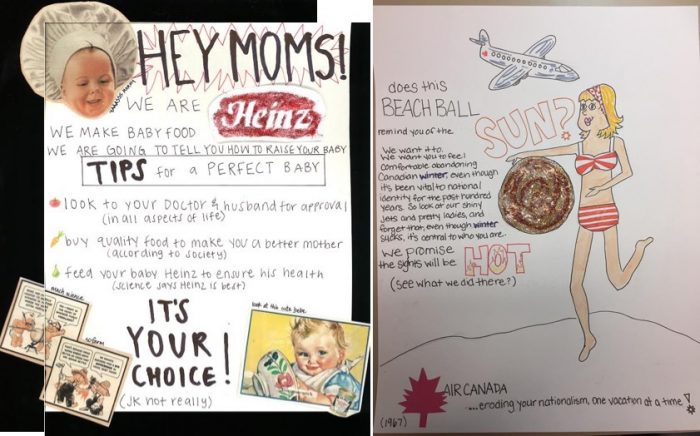 HEY MOMS!
WE ARE
Heinz
WE MAKE BABY FOOD
WE ARE GOING TO TELL YOU HOW TO RAISE YOUR BABY
TIPS for a PERFECT BABY
look to your Doctor & husband for approval
(in all aspects of life)
buy quality food to make you a better mother
(according to society)
feed your baby Heinz to ensure his health
(science says Heinz is best)
much science
so farm
IT'S
YOUR
CHOICE!
(JK not really)
look at this cute babe
does this
BEACH BALL
remind you of the
SUN?
We want it to.
We want you to feel
comfortable abandoning
Canadian winter, even though
it's been vital to national
identity for the past hundred
years. So look at our shiny
jets and pretty ladies, and
forget that, even though winter
sucks, it's central to who you are.
We promise
the sights will be
HOT
(see what we did there?)
AIR CANADA
...eroding your nationalism, one vacation at a time!
(1967)